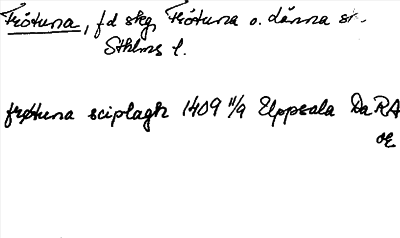 Frötuna, f d skg, Frötuna o. Länna sn.
Sthlms l.
frøtuna sciplagh 1409 11/9 Uppsala Da RA
OE